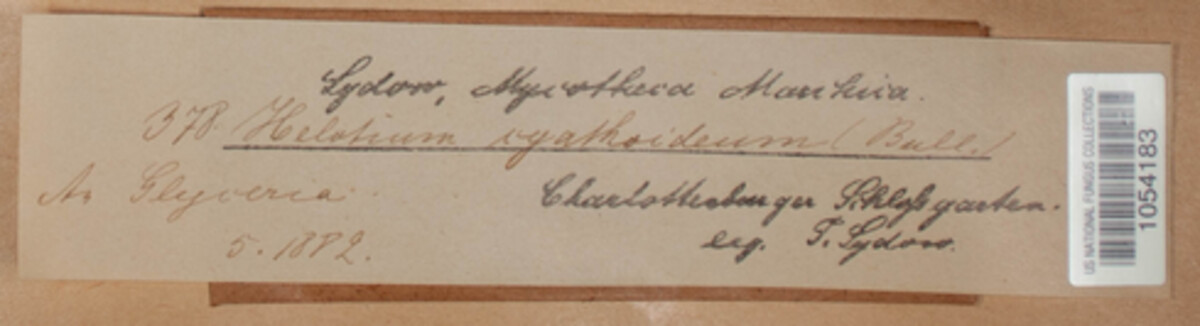 Sydow, Mycotheca Marchica.
378. Helotium cyathoideum (Bull.)
An Glyceria.
Charlottenburger Schloßgarten.
5. 1882.
leg. P. Sydow.
US NATIONAL FUNGUS COLLECTIONS
1054183